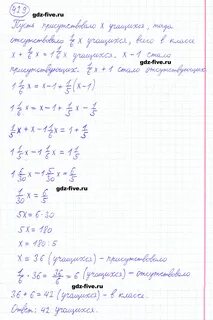 429
gdz-five.ru
Пусть присутствовало x учащихся, тогда
отсутствовало 1/6 x учащихся, всего в классе
x + 1/6 x = 1 1/6 x учащихся. x - 1 стало
присутствующих. 1/6 x + 1 стало отсутствующих.
gdz-five.ru
1 1/6 x = x - 1 + 1/5 (x - 1)
1 1/6 x = x - 1 + 1/5 x - 1/5
1 1/6 x + x - 1 1/6 x = 1 + 1/5
1 1/5 x - 1 1/6 x = 1 1/5
1 6/30 x - 1 5/30 x = 6/5
1/30 x = 6/5
gdz-five.ru
5x = 6 · 30
5x = 180
x = 180 : 5
x = 36 (учащихся) - присутствовало
1/6 · 36 = 36/6 = 6 (учащихся) - отсутствовало
36 + 6 = 42 (учащихся) - в классе.
Ответ: 42 учащихся.
gdz-five.ru